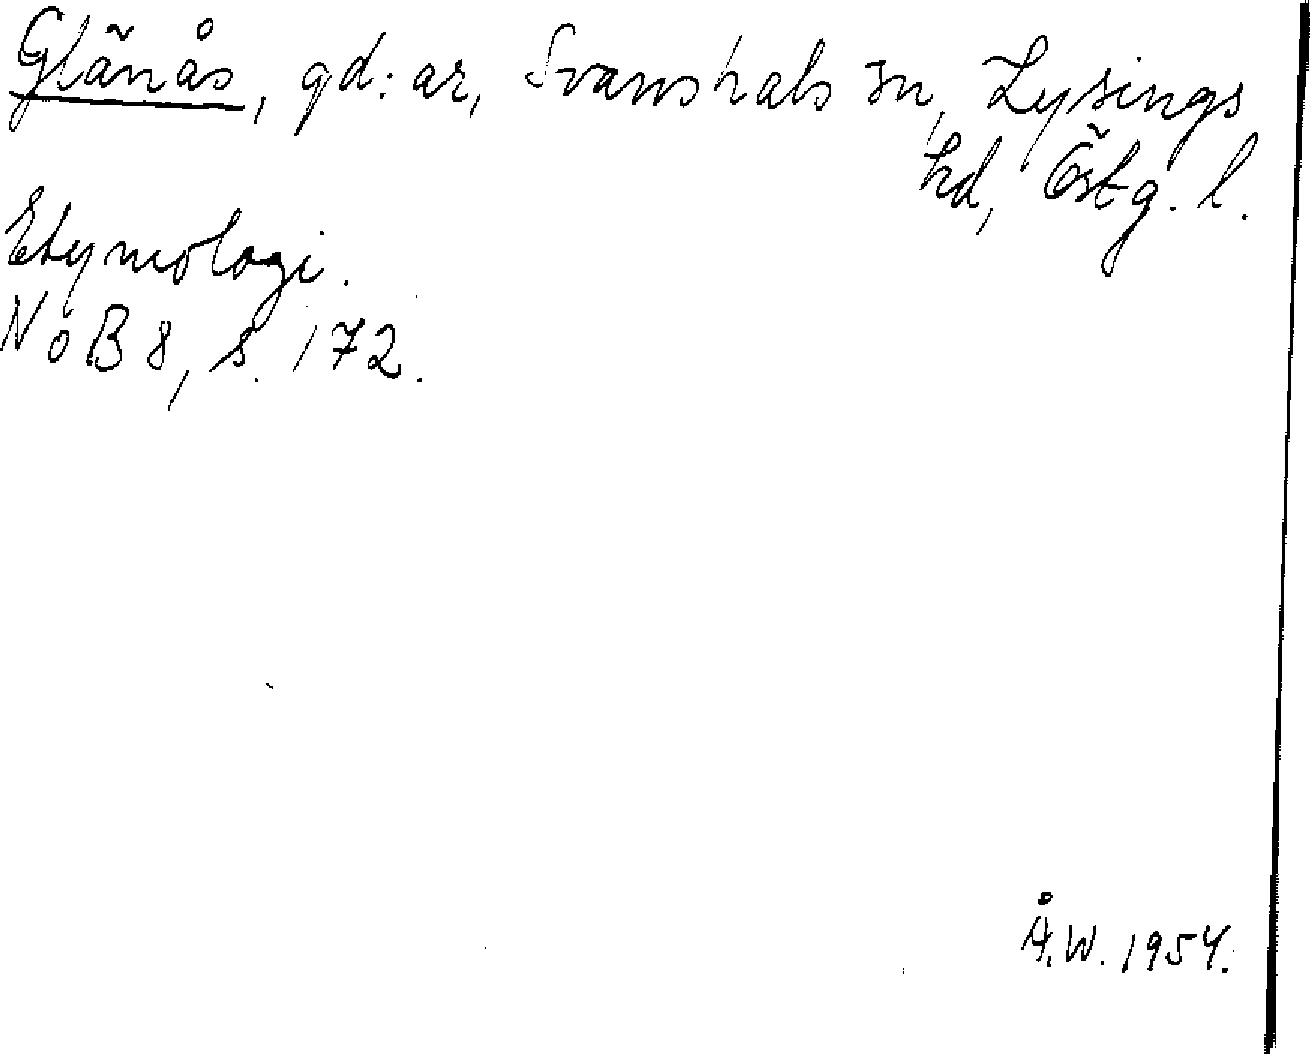 Glänås, gd:ar, Svanshals sn, Lysings
hd, Östg. l.
Etymologi.
NoB 8, s. 172.
Å.W. 1954.